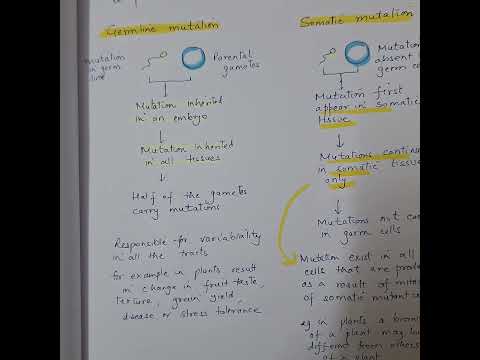 Germline mutation
Mutation
in germ
line
Parental
gametes
Mutation inherited
in an embryo
Mutation inherited
in all tissues
Half of the gametes
carry mutations
Responsible for variability
in all the traits
for example in plants result
in change in fruit taste,
texture, grain yield
disease or stress tolerance
Somatic mutation
Mutation
absent
germ
Mutation first
appear in somatic
tissue
Mutations
in somatic
only
Mutations not
in germ cells
Mutation exist in all
cells that are
as a result of
of somatic mutant
eg in plants a
of a plant may
different from others
of a plant